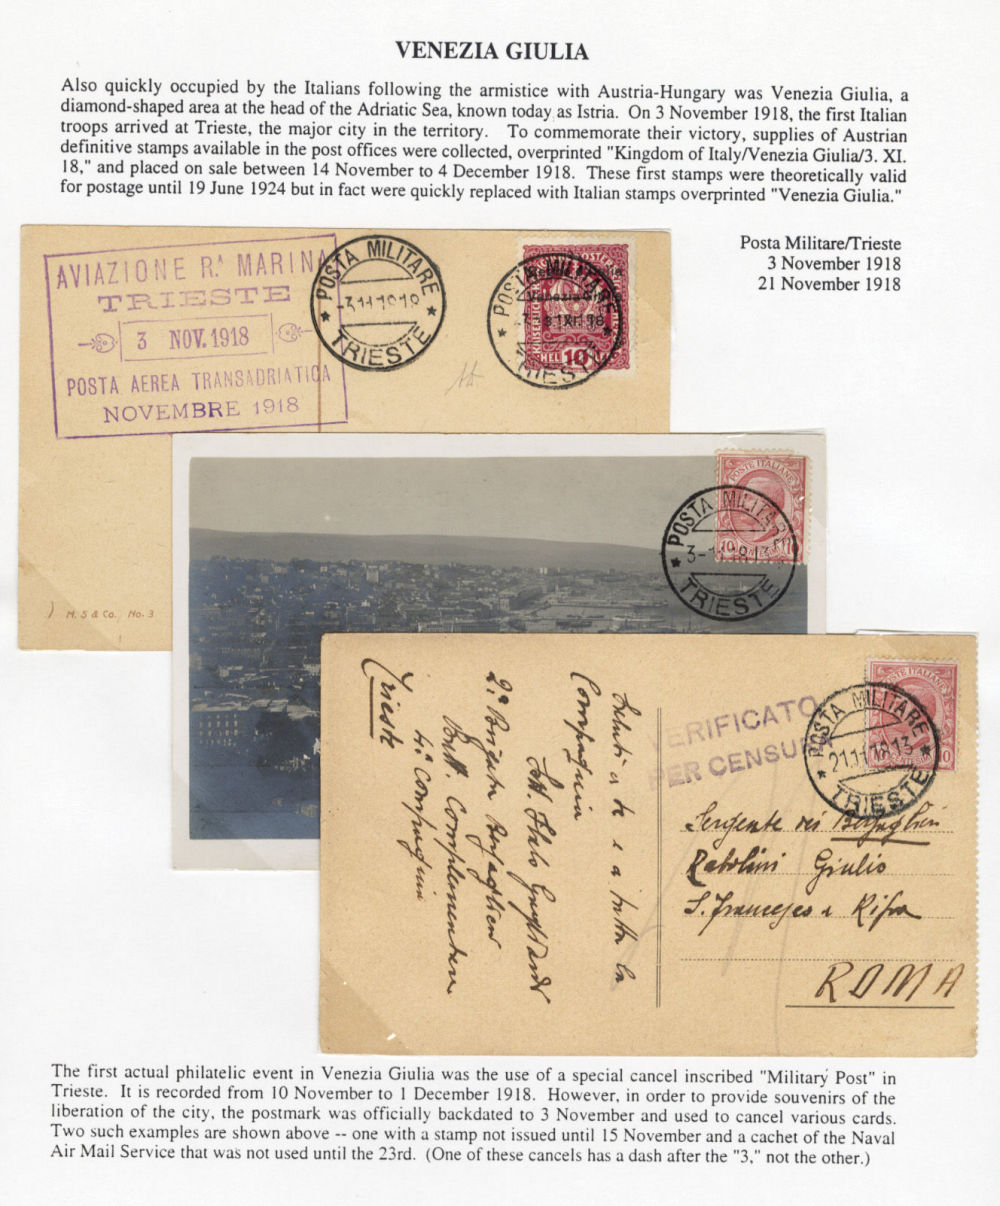 VENEZIA GIULIA
Also quickly occupied by the Italians following the armistice with Austria-Hungary was Venezia Giulia, a
diamond-shaped area at the head of the Adriatic Sea, known today as Istria. On 3 November 1918, the first Italian
troops arrived at Trieste, the major city in the territory. To commemorate their victory, supplies of Austrian
definitive stamps available in the post offices were collected, overprinted "Kingdom of Italy/Venezia Giulia/3. XI.
18," and placed on sale between 14 November to 4 December 1918. These first stamps were theoretically valid
for postage until 19 June 1924 but in fact were quickly replaced with Italian stamps overprinted "Venezia Giulia."
Posta Militare/Trieste
3 November 1918
21 November 1918
AVIAZIONE R.A MARINA
TRIESTE
3 NOV. 1918
POSTA AEREA TRANSADRIATICA
NOVEMBRE 1918
POSTA MILITARE
-3.11.1918
TRIESTE
POSTA MILITARE
Venezia Giulia
3. XI. 18.
HELLER 10
TRIESTE
M. S & Co. No. 3
POSTE ITALIANE
10
POSTA MILITARE
3-11.18 13
TRIESTE
POSTE ITALIANE
10
POSTA MILITARE
21.11.18.13
TRIESTE
VERIFICATO
PER CENSURA
Saluti a te e a tutta la
Compagnia
Sott. Italo
2a Brigata Bersaglieri
Batt. Complementare
4a Compagnia
Trieste
Sergente dei Bersaglieri
Giulio
S. Francesco a Ripa
ROMA
The first actual philatelic event in Venezia Giulia was the use of a special cancel inscribed "Military Post" in
Trieste. It is recorded from 10 November to 1 December 1918. However, in order to provide souvenirs of the
liberation of the city, the postmark was officially backdated to 3 November and used to cancel various cards.
Two such examples are shown above -- one with a stamp not issued until 15 November and a cachet of the Naval
Air Mail Service that was not used until the 23rd. (One of these cancels has a dash after the "3," not the other.)